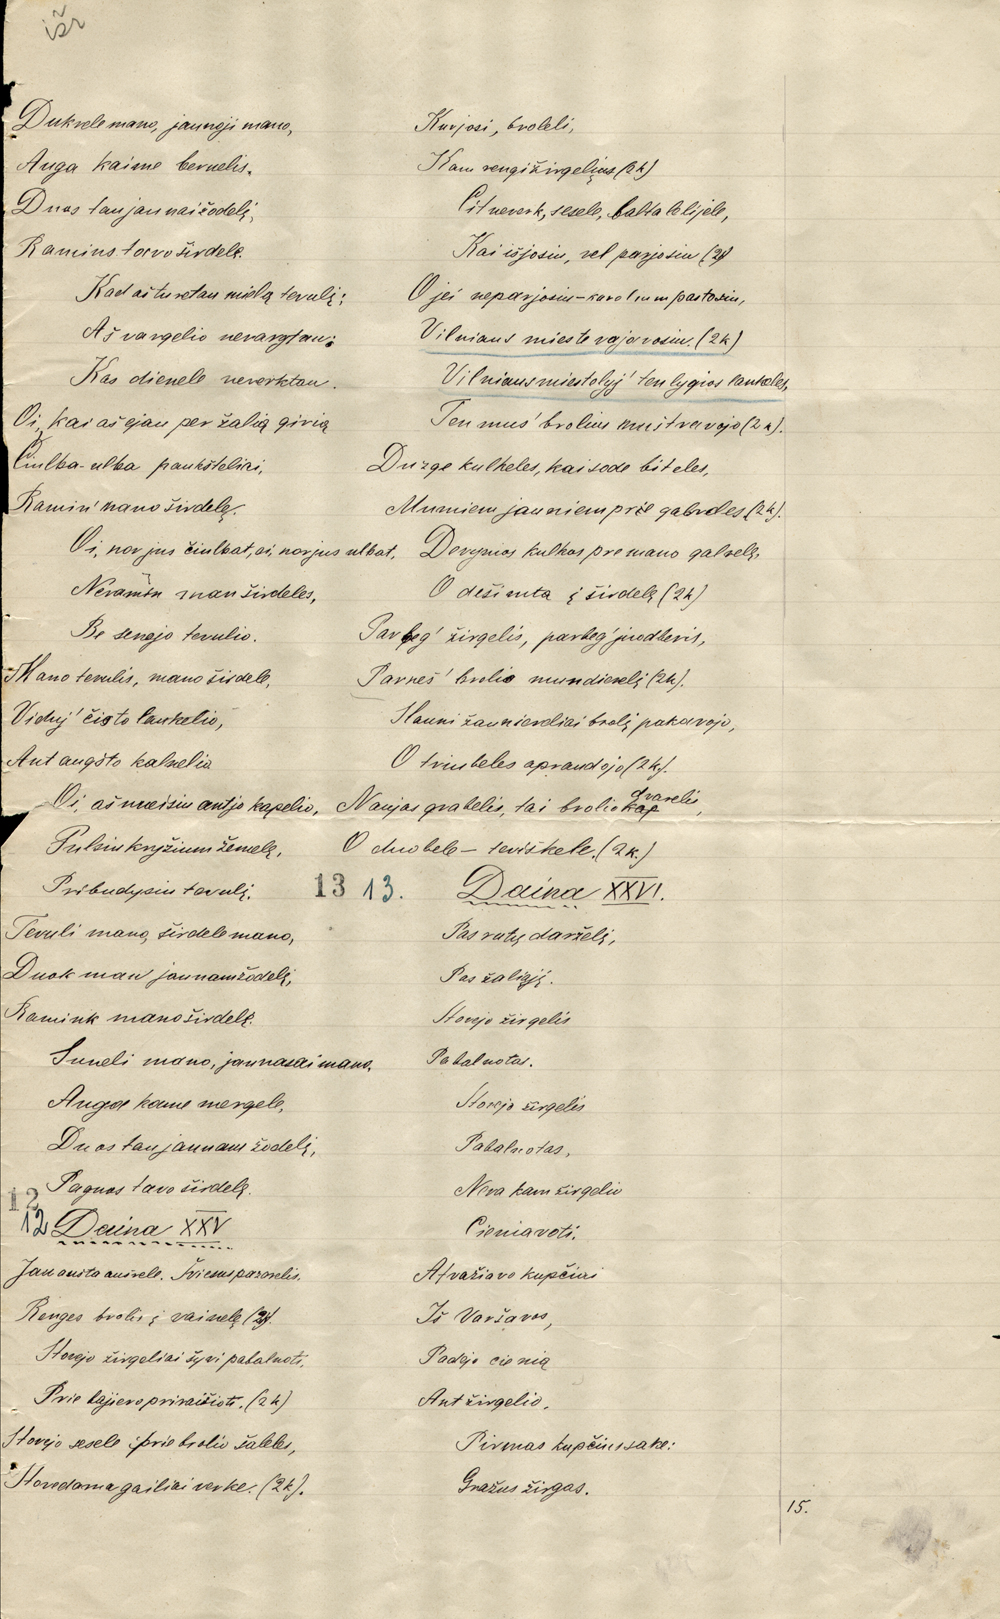 išr
Dukrele mano, jaunoji mano,
Auga kaime bernelis,
Duos tau jaunai žodelį,
Ramins tavo širdelę.
Kad aš turėtau mielą tevulį;
Aš vargelio nevargtau;
Kas dienele neverktau.
Oi, kai aš ejau per žalią girią
Čiulba-ulba paukšteliai,
Ramin' mano širdelę.
Oi, nor jus čiulbat, oi, nor jus ulbat,
Neramin man širdeles,
Be senojo tevulio.
Mano tevulis, mano širdele,
Viduj' čisto laukelio,
Ant augšto kalnelio
Oi, aš nueisiu ant jo kapelio,
Pulsiu kryžium žemelę,
Pribudysiu tevulį.
Tevuli mano, širdele mano,
Duok man jaunam žodelį,
Ramink mano širdelę.
Suneli mano, jaunasai mano,
Auga kaime mergele,
Duos tau jaunam žodelį,
Paguos tavo širdelę.
12
12 Daina XXV
Jau aušta aušrele. Šviesus pazarelis.
Renges brolis į vainelę (2k).
Stovejo žirgeliai šyvi pabalnoti,
Prie dajiero priraišioti. (2k)
Stovejo sesele prie brolio šaleles,
Stovedama gailiai verke. (2k).
Kur josi, broleli,
Kam rengi žirgelius (2k)
Cit neverk, sesele, balta lelijele,
Kai išjosiu, vel parjosiu (2k)
O jei neparjosiu – karolium pastosiu,
Vilniaus mieste vajavosiu. (2k)
Vilniaus miestelyj' ten lygios lankeles,
Ten mus' brolius muštravojo (2k).
Duzge kulkeles, kai sode biteles,
Mumiem jauniem prie galveles (2k).
Devynios kulkos pre mano galvelę,
O dešimta į širdelę (2k)
Parbeg' žirgelis, parbeg' juodberis,
Parneš' brolio mundierelį (2k).
Jauni žaunierėliai brolį pakavojo,
O triubeles apraudojo (2k).
Naujas grabelis, tai brolio kap dvarelis,
O duobele – teviškele. (2k.)
13 13. Daina XXVI.
Pas rutų darželį,
Pas žaliąjį.
Stovejo žirgelis
Pabalnotas.
Stovejo žirgelis
Pabalnotas,
Nera kam žirgelio
Cieniavoti.
Atvažiavo kupčiai
Iš Varšavos,
Padejo cienią
Ant žirgelio,
Pirmas kupčius sake:
Gražus žirgas.
15.